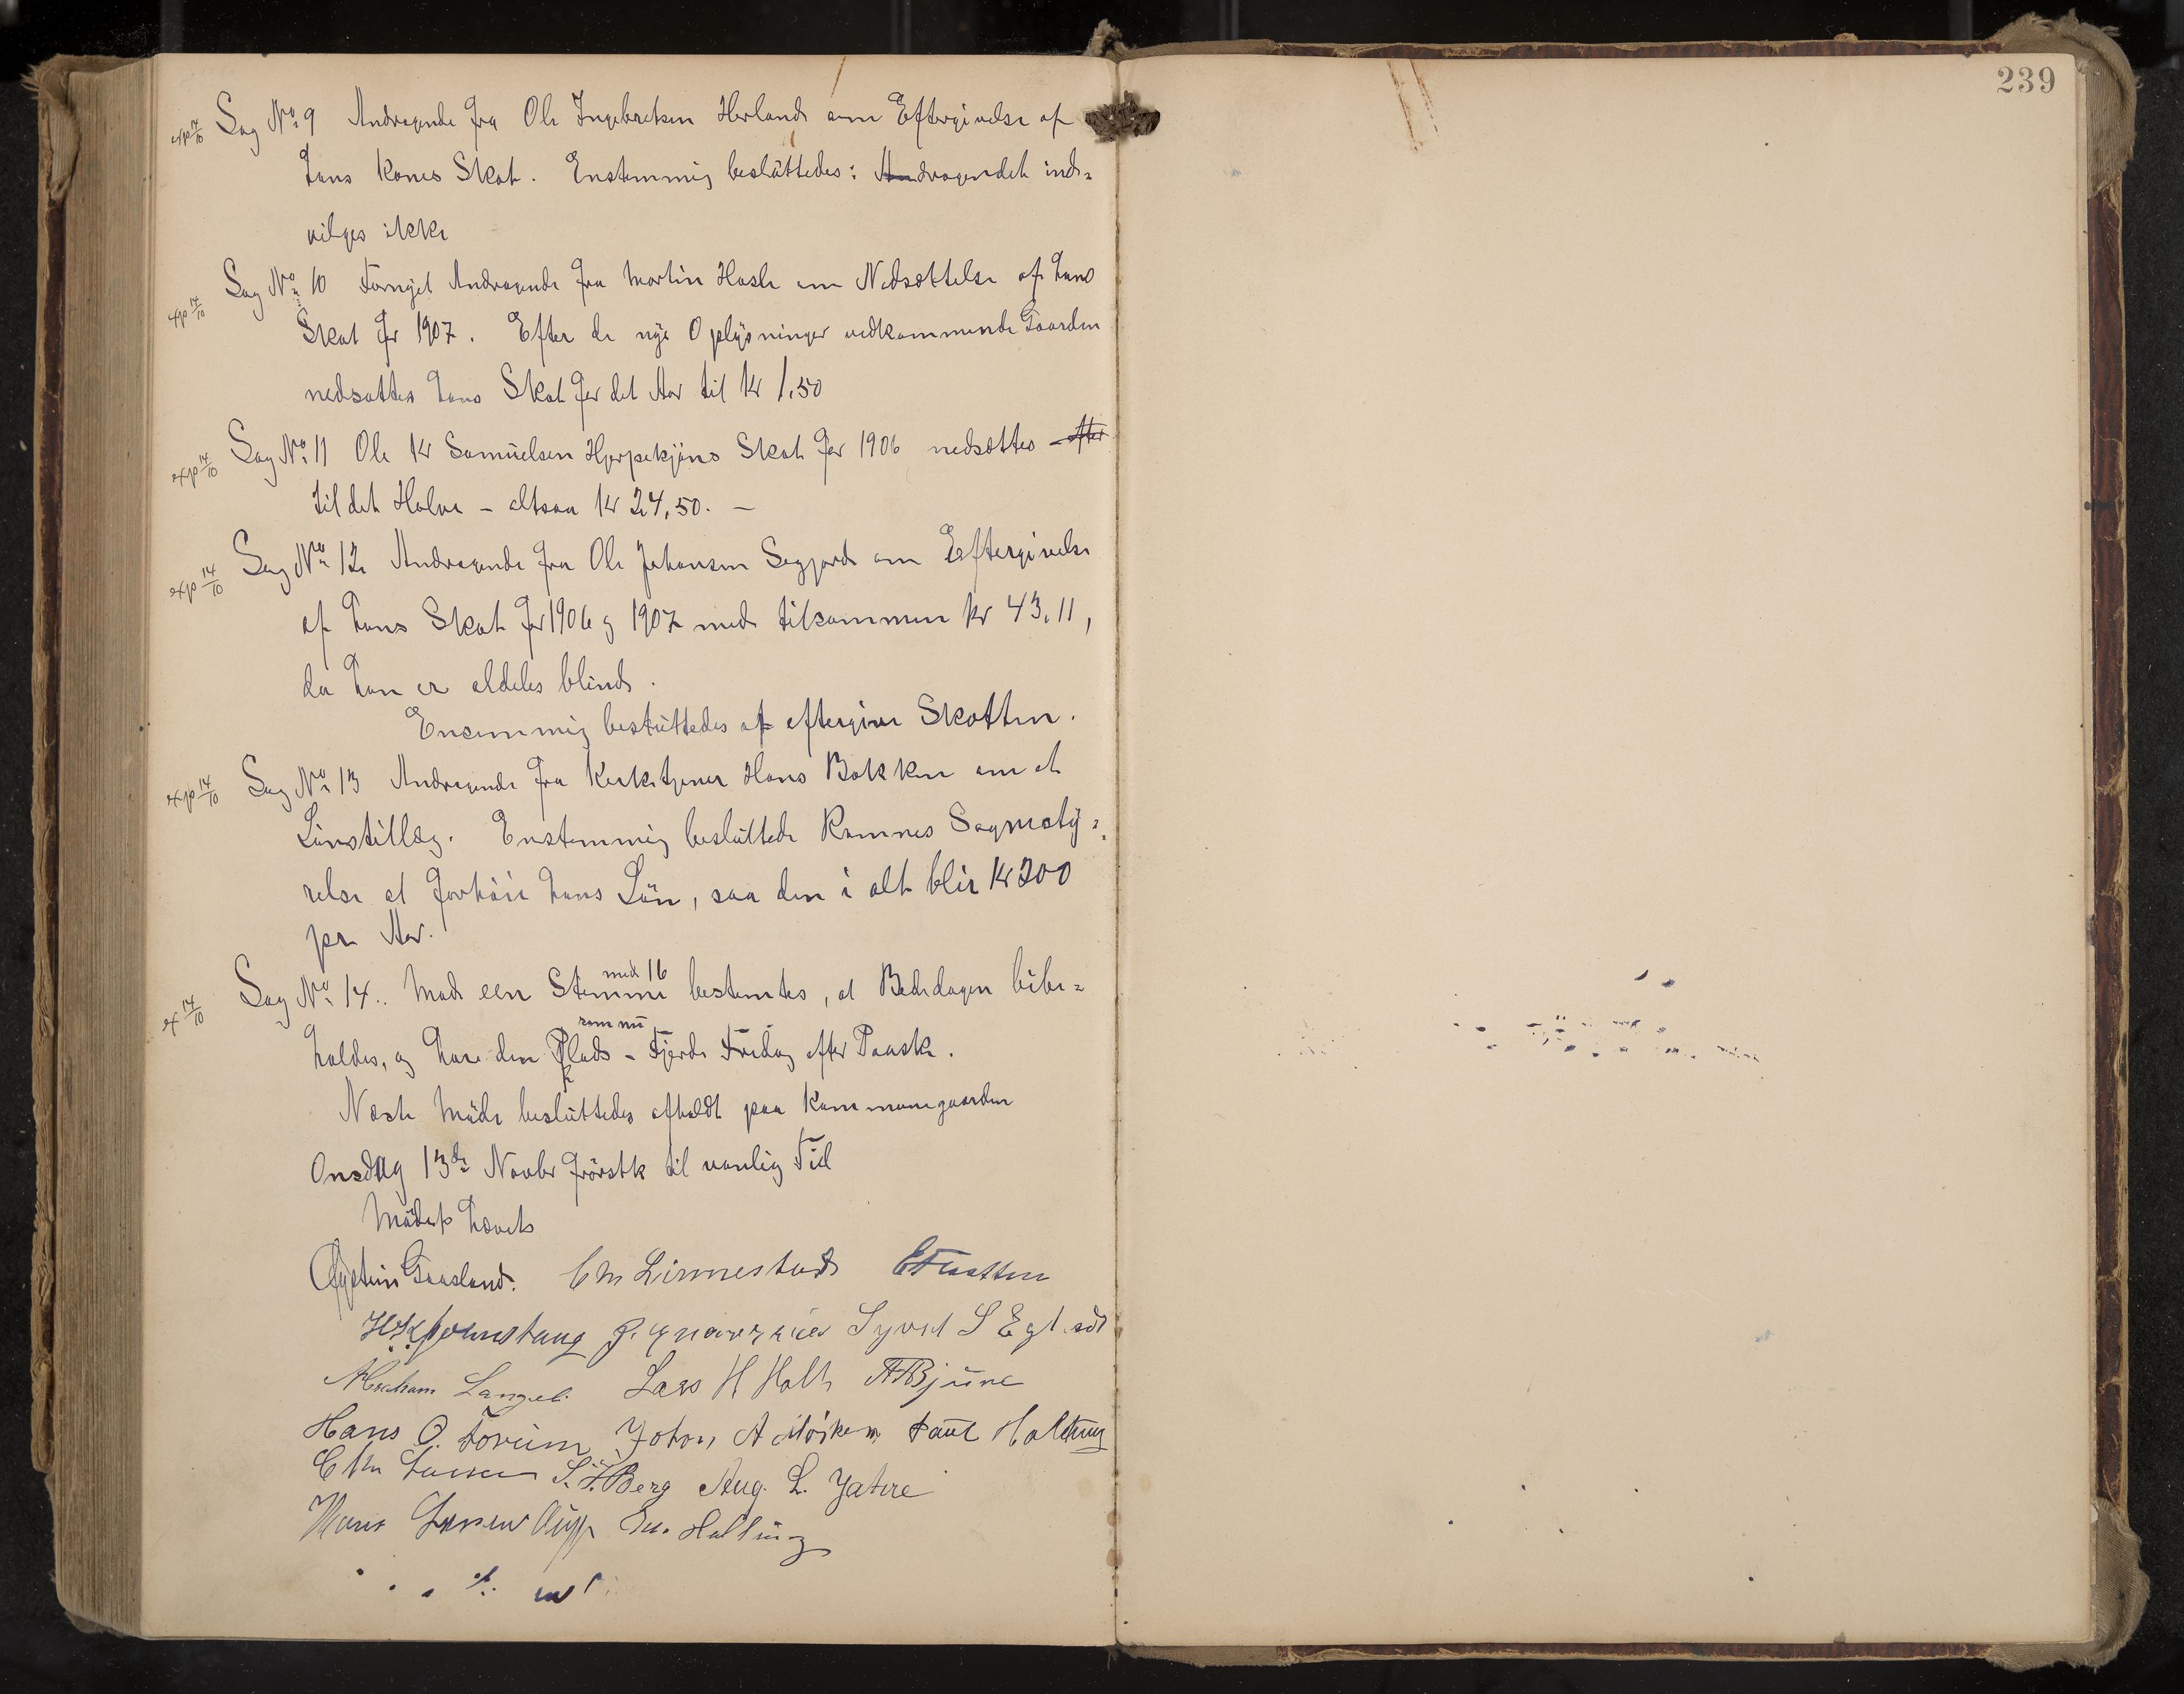 239
exp 14/10 Sag No 9 Andragende fra Ole Ingebretsen Herland om Eftergivelse af
hans Kones Skat. Enstemmig besluttedes: Andragendet ind=
vilges ikke
exp 14/10 Sag No 10 Fornyet Andragende fra Martin Hasle om Nedsættelse af hans
Skat for 1907. Efter de nye Oplysninger vedkommende Gaarden
nedsattes hans Skat for det Aar til Kr 1,50
exp 14/10 Sag No 11 Ole Kr Samuelsen Hjerpekjøns Skat for 1906 nedsættes efter
til det Halve - altsaa Kr 24,50. -
exp 14/10 Sag No 12 Andragende fra Ole Johansen Segjord om Eftergivelse
af hans Skat for 1906 og 1907 med tilsammen Kr 43,11,
da han er aldeles blind.
Ensemmig besluttedes at eftergive Skatten.
exp 14/10 Sag No 13 Andragende fra Kirketjener Hans Bakken om et
Lønstillæg. Enstemmig besluttede Ramnes Sognesty=
relse at forhøie hans Løn, saa den i alt blir Kr 200
pr Aar.
ex 14/10 Sag No 14. Mod een Stemme med 16 bestemtes, at Bededagen bibe=
holdes, og have den Plads som nu - Fjerde Fredag efter Paaske.
Næste Møde besluttedes afholdt paa Kommunegaarden
Onsdag 13de Novbr førstk til vanlig Tid
Mødet hævet
Øystein Gaasland. C M Linnestad E Tvetten
Syvert S
Abraham Lars H Holt A Bjune
Hans O. Forum Johan A Paul Holtung
C M Larsen S. F. Berg Aug. L. Jatvei
Hans Larsen